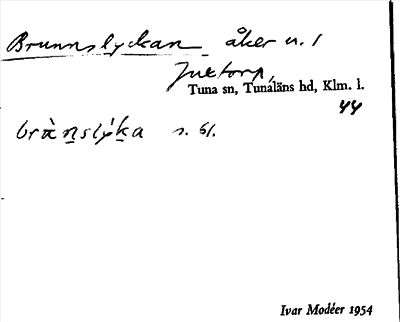 Brunnslyckan åker n. 1
Juetorp,
Tuna sn, Tunaläns hd, Klm. l.
44
brànslýka s. 61.
Ivar Modéer 1954